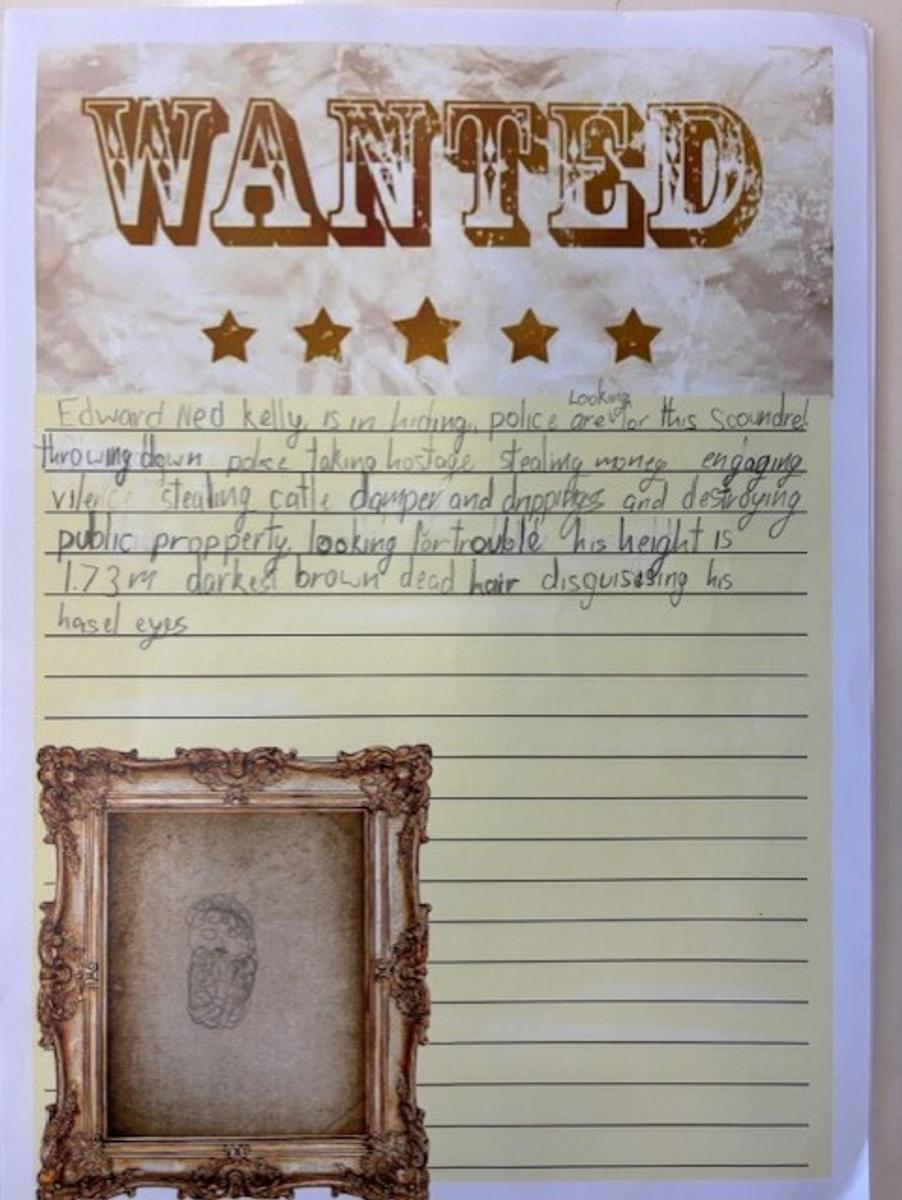 WANTED
Edward Ned Kelly, is in hiding, police are Looking for this Scoundrel
throwing down police taking hostage stealing money engaging
stealing catle damper and drippings and destroying
public propperty, looking for trouble his height is
1.73m darkest brown dead hair disguiseing his
hasel eyes